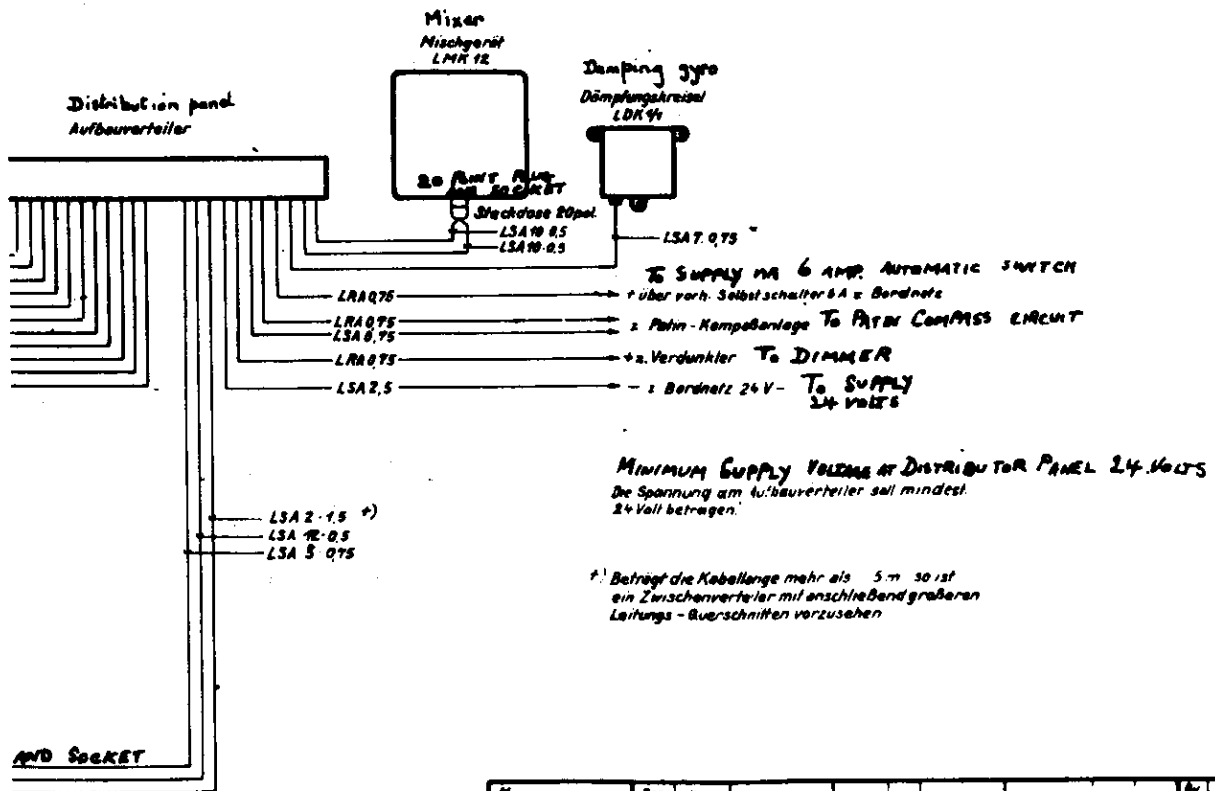 Mixer
Mischgerät
LMK 12
Damping gyro
Dämpfungskreisel
LDK 4/1
Distribution panel
Aufbauverteiler
20 POINT PLUG
AND SOCKET
Steckdose 20pol.
LSA 10 0,5
LSA 10-0,5
LSA 7. 0,75
TO SUPPLY VIA 6 AMP. AUTOMATIC SWITCH
LRA 0,75
+ über vorh. Selbstschalter 6 A z Bordnetz
LRA 0,75
LSA 0,75
z Patin-Kompaßanlage TO PATIN COMPASS CIRCUIT
LRA 0,75
+ z. Verdunkler TO DIMMER
LSA 2,5
- z Bordnetz 24 V - TO SUPPLY
24 VOLTS
MINIMUM SUPPLY VOLTAGE AT DISTRIBUTOR PANEL 24 VOLTS
Die Spannung am Aufbauverteiler soll mindest.
24 Volt betragen.
LSA 2-1,5 +)
LSA 12-0,5
LSA 5 0,75
+) Beträgt die Kabellänge mehr als 5 m so ist
ein Zwischenverteiler mit anschließend großeren
Leitungs-Querschnitten vorzusehen
AND SOCKET